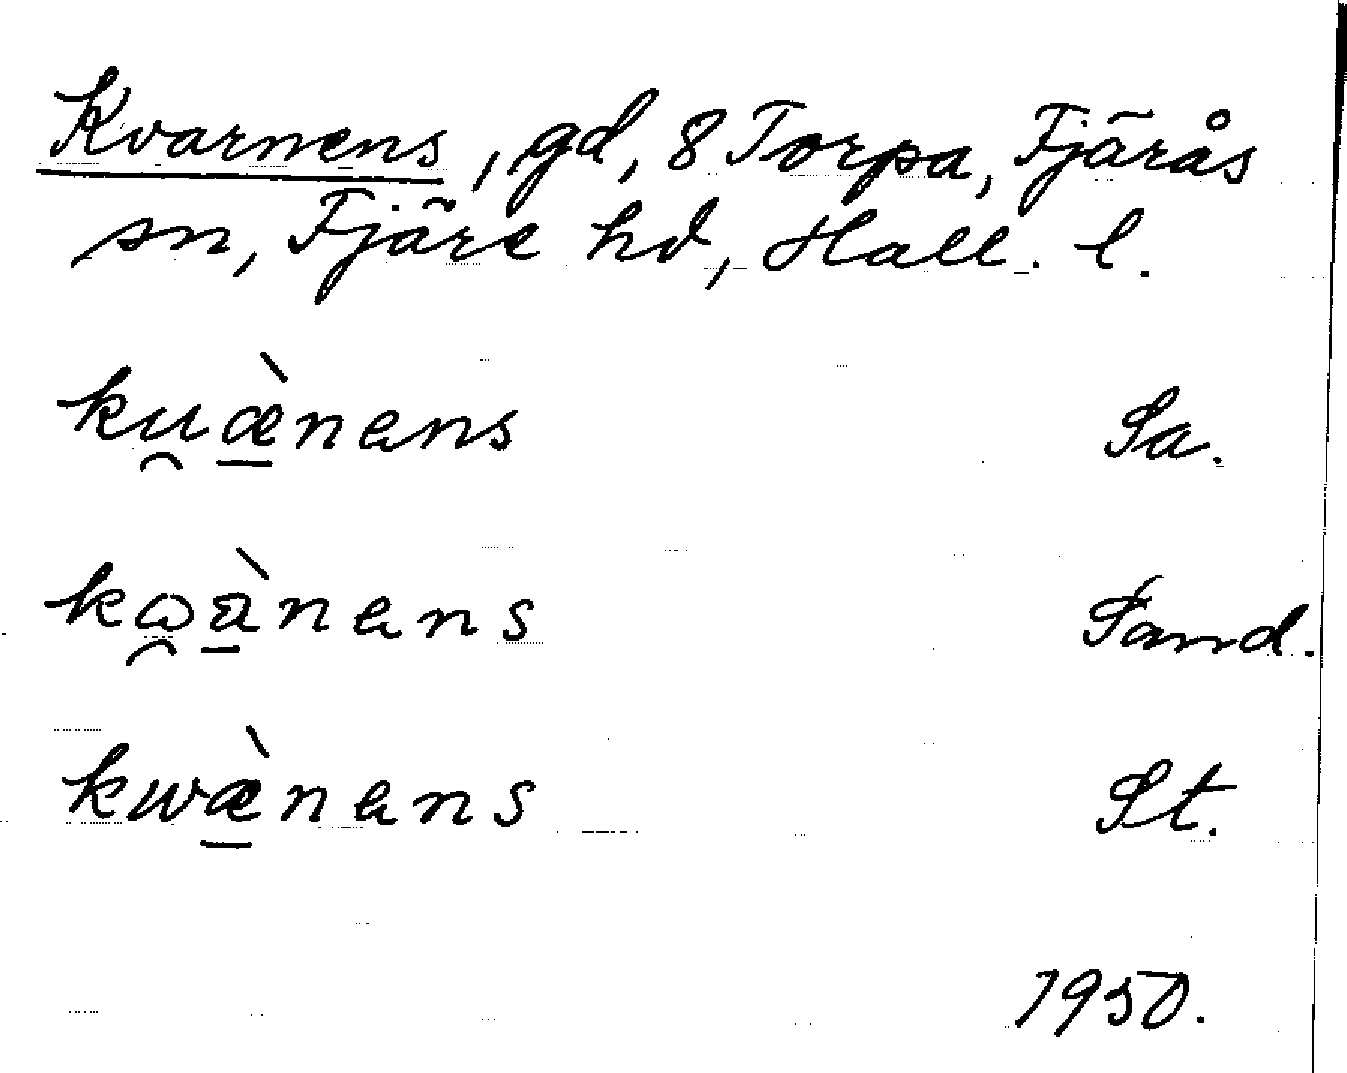 Kvarnens, gd, 8 Torpa, Fjärås
sn, Fjäre hd, Hall. l.
ku̯æ̱̀nans Sa.
kɷ̯à̱nans Sand.
kwæ̱̀nans St.
1950.